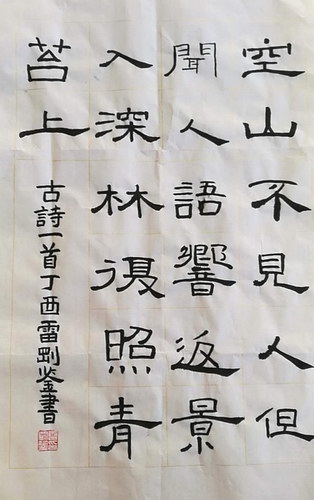 空山不見人但
聞人語響返景
入深林復照青
苔上
古詩一首丁酉雷剛鉴書